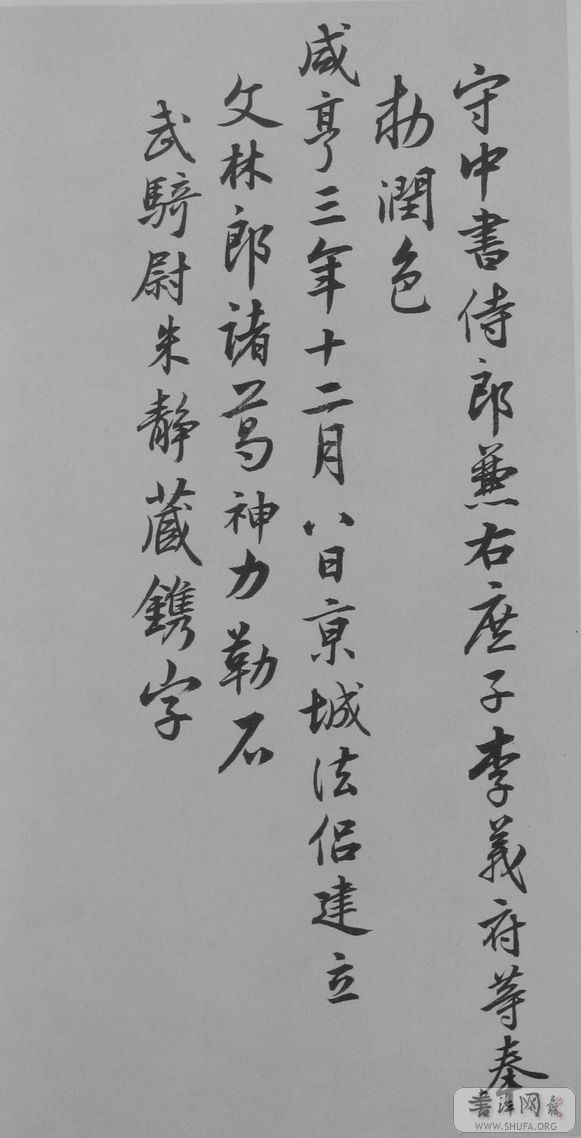 守中書侍郎兼右庶子李義府等奉
勅潤色
咸亨三年十二月八日京城法侶建立
文林郎諸葛神力勒石
武騎尉朱靜藏鐫字
書法网
WWW.SHUFA.ORG